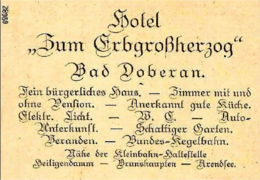 28969
Hotel
„Zum Erbgroßherzog“
Bad Doberan.
Fein bürgerliches Haus, — Zimmer mit und
ohne Pension. — Anerkannt gute Küche.
Elektr. Licht. — W. C. — Auto-
Unterkunft. — Schattiger Garten.
Veranden. — Bundes-Kegelbahn.
Nähe der Kleinbahn-Haltestelle
Heiligendamm — Brunshaupten — Arendsee.